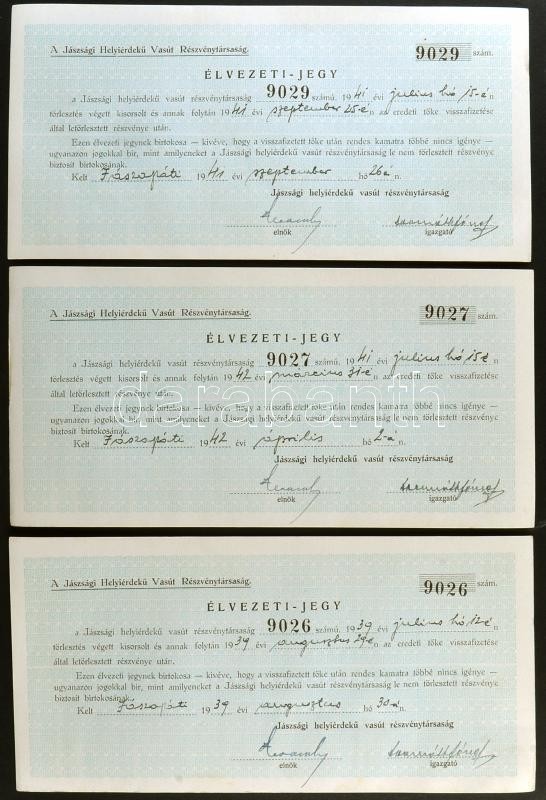 A Jászsági Helyiérdekű Vasút Részvénytársaság. 9029 szám.
ÉLVEZETI-JEGY
a Jászsági helyiérdekű vasút részvénytársaság 9029 számú, 1941 évi julius hó 15-é n
törlesztés végett kisorsolt és annak folytán 1941 évi szeptember 25-é n az eredeti tőke visszafizetése
által letörlesztett részvénye után.
Ezen élvezeti jegynek birtokosa — kivéve, hogy a visszafizetett tőke után rendes kamatra többé nincs igénye —
ugyanazon jogokkal bir, mint amilyeneket a Jászsági helyiérdekű vasút részvénytársaság le nem törlesztett részvénye
biztosit birtokosának.
Kelt Jászapáti 1941 évi szeptember hó 26á n.
Jászsági helyiérdekű vasút részvénytársaság
elnök igazgató
A Jászsági Helyiérdekű Vasút Részvénytársaság. 9027 szám.
ÉLVEZETI-JEGY
a Jászsági helyiérdekű vasút részvénytársaság 9027 számú, 1941 évi julius hó 15-é n
törlesztés végett kisorsolt és annak folytán 1942 évi március 31-é n az eredeti tőke visszafizetése
által letörlesztett részvénye után.
Ezen élvezeti jegynek birtokosa — kivéve, hogy a visszafizetett tőke után rendes kamatra többé nincs igénye —
ugyanazon jogokkal bir, mint amilyeneket a Jászsági helyiérdekű vasút részvénytársaság le nem törlesztett részvénye
biztosit birtokosának.
Kelt Jászapáti 1942 évi április hó 2-á n.
Jászsági helyiérdekű vasút részvénytársaság
elnök igazgató
darabanth
A Jászsági Helyiérdekű Vasút Részvénytársaság. 9026 szám.
ÉLVEZETI-JEGY
a Jászsági helyiérdekű vasút részvénytársaság 9026 számú, 1939 évi julius hó 12-é n
törlesztés végett kisorsolt és annak folytán 1939 évi augusztus 29-é n az eredeti tőke visszafizetése
által letörlesztett részvénye után.
Ezen élvezeti jegynek birtokosa — kivéve, hogy a visszafizetett tőke után rendes kamatra többé nincs igénye —
ugyanazon jogokkal bir, mint amilyeneket a Jászsági helyiérdekű vasút részvénytársaság le nem törlesztett részvénye
biztosit birtokosának.
Kelt Jászapáti 1939 évi augusztus hó 30á n.
Jászsági helyiérdekű vasút részvénytársaság
elnök igazgató